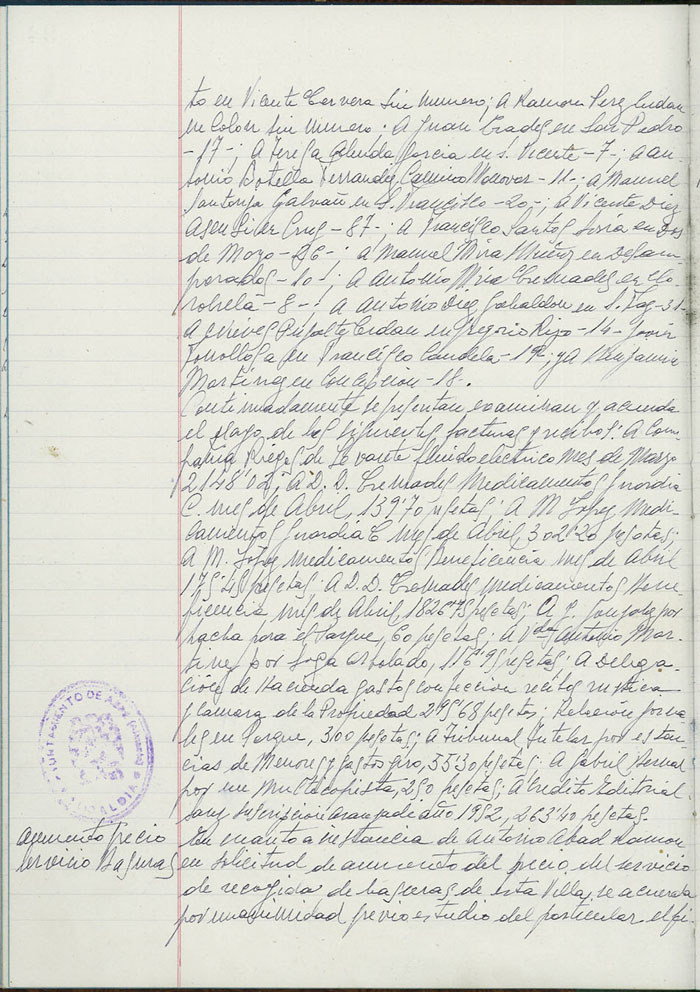 to en Vicente Cervera sin numero; A Ramon Perez Cerdan
en Colon sin numero; A Juan Cradez en San Pedro
-17-; A Teresa Almida Garcia en S. Vicente -7-; a An-
tonio Botella Ferrandez Camino Monovar -11-; a Manuel
Santonja Galvañ en S. Francisco -20-; A Vicente Diez
Asensi en Cruz -87-; a Francisco Santos Soria en Dos
de Mayo -26-; a Manuel Mira Muñoz en Desam-
parados -10-; a Antonio Mira Cremades en
-8-; A Antonio Diez Gabaldon en S. -31-
A Nieves Pujalte Cerdan en Gregorio Rizo -14- Javier
en Francisco Candela -19-; y A Benjamin
Martinez en Concepcion -18.
Continuadamente se presentan examinan y acuerda
el pago de las siguientes facturas y recibos: A Com-
pañia Riegos de Levante fluido electrico mes de Marzo
2148'02; A D. D. Cremades Medicamentos Guardia
C. mes de Abril, 139'70 pesetas; A M. Lopez Medi-
camentos Guardia C mes de Abril, 302'20 pesetas;
A M. Lopez medicamentos Beneficencia mes de abril
175'45 pesetas; A D. D. Cremades medicamentos Bene-
ficencia mes de Abril, 1826'75 pesetas; A P. Gonzalez por
pacha para el Parque, 60 pesetas; A Vda Antonio Mar-
tinez por soga arbolado, 116'95 pesetas; A Delega-
ción de Hacienda gastos confeccion recibos rustica
y Camara de la Propiedad 295'68 pesetas; Relación jorna-
les en Parque, 300 pesetas; A Tribunal Tutelar por estan-
cias de Menores y gastos giro, 55'30 pesetas; A Gabriel Bernal
por un multicopista, 250 pesetas; A Credito Editorial
suscripcion Aranzadi año 1952, 263'40 pesetas.
En cuanto a instancia de Antonio Abad Ramon
en solicitud de aumento del precio del servicio
de recogida de basuras de esta Villa, se acuerda
por unanimidad previo estudio del particular el fi-
aumento precio
servicio Basuras
AYUNTAMIENTO DE ASPE (Alicante)
ALCALDIA